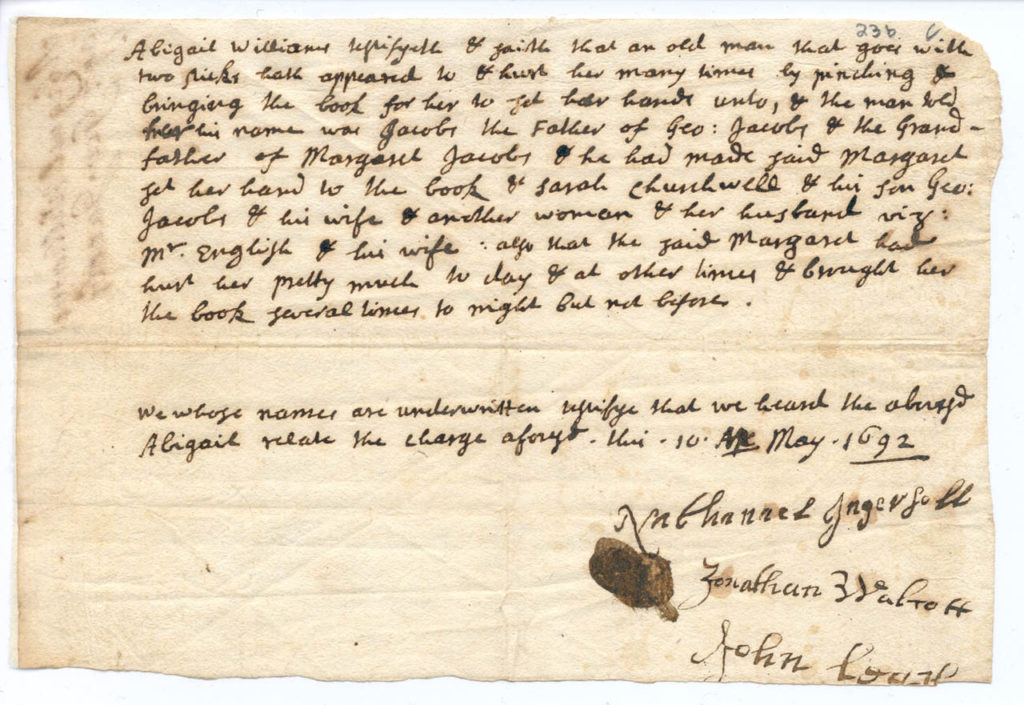 236 6
Abigail Williams testifyeth & saith that an old man that goes with
two sticks hath appeared to & hurt her many times by pinching &
bringing the book for her to set her hands unto, & the man told
her his name was Jacobs the Father of Geo: Jacobs & the Grand-
father of Margaret Jacobs & he had made said Margaret
set her hand to the book & Sarah Churchwell & his son Geo:
Jacobs & his wife & another woman & her husband viz:
Mr. English & his wife : also that the said Margaret had
hurt her pretty much to day & at other times & brought her
the book several times to night but not before.
We whose names are underwritten testifye that we heard the abovesd
Abigail relate the charge aforesd. this . 10. May . 1692
Nathaniel Ingersoll
Jonathan Walcott
John